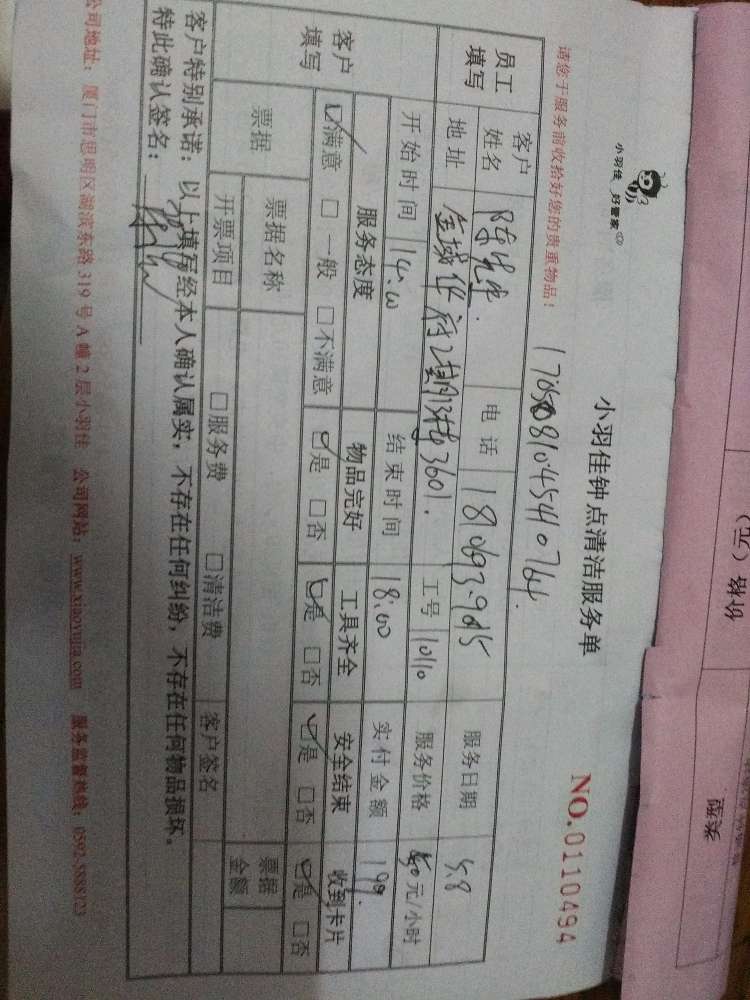 小羽佳 好管家
小羽佳钟点清洁服务单
NO.0110494
请您于服务前收拾好您的贵重物品！
员工填写
客户姓名 陈先生 电话 服务日期 5.8
地址 2# 3601. 工号 10110 服务价格 元/小时
开始时间 14:00 结束时间 18:00 实付金额
客户填写
服务态度 物品完好 工具齐全 安全结束 收到卡片
☑满意 □一般 □不满意 ☑是 □否 ☑是 □否 ☑是 □否 ☑是 □否
票据 票据名称 票据金额
开票项目 □服务费 □清洁费 客户签名
客户特别承诺：以上填写经本人确认属实，不存在任何纠纷，不存在任何物品损坏。
特此确认签名：
公司地址：厦门市思明区湖滨东路319号A幢2层小羽佳 公司网站：www.xiaoyujia.com 服务监督热线：0592-5888123
价格（元）